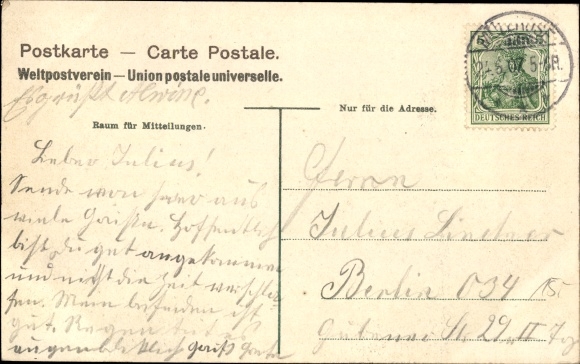 Postkarte — Carte Postale.
Weltpostverein — Union postale universelle.
Es grüßt Alwine.
Raum für Mitteilungen.
Nur für die Adresse.
DEUTSCHES REICH
5-6N.
Lieber Julius!
Sende von hier aus
viele Grüße. Hoffentlich
bist du gut angekommen
und nicht die Zeit verschla-
fen. Mein befinden ist
gut. Regen
augenblicklich Gruß
Herrn
Julius Lindner
Berlin O34
Gubener Str. 29 II